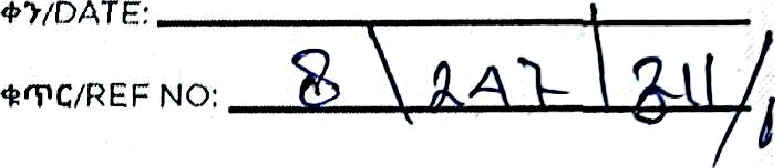 ቀን/DATE:
ቁጥር/REF NO: 8 \ 2A7 | 311 /